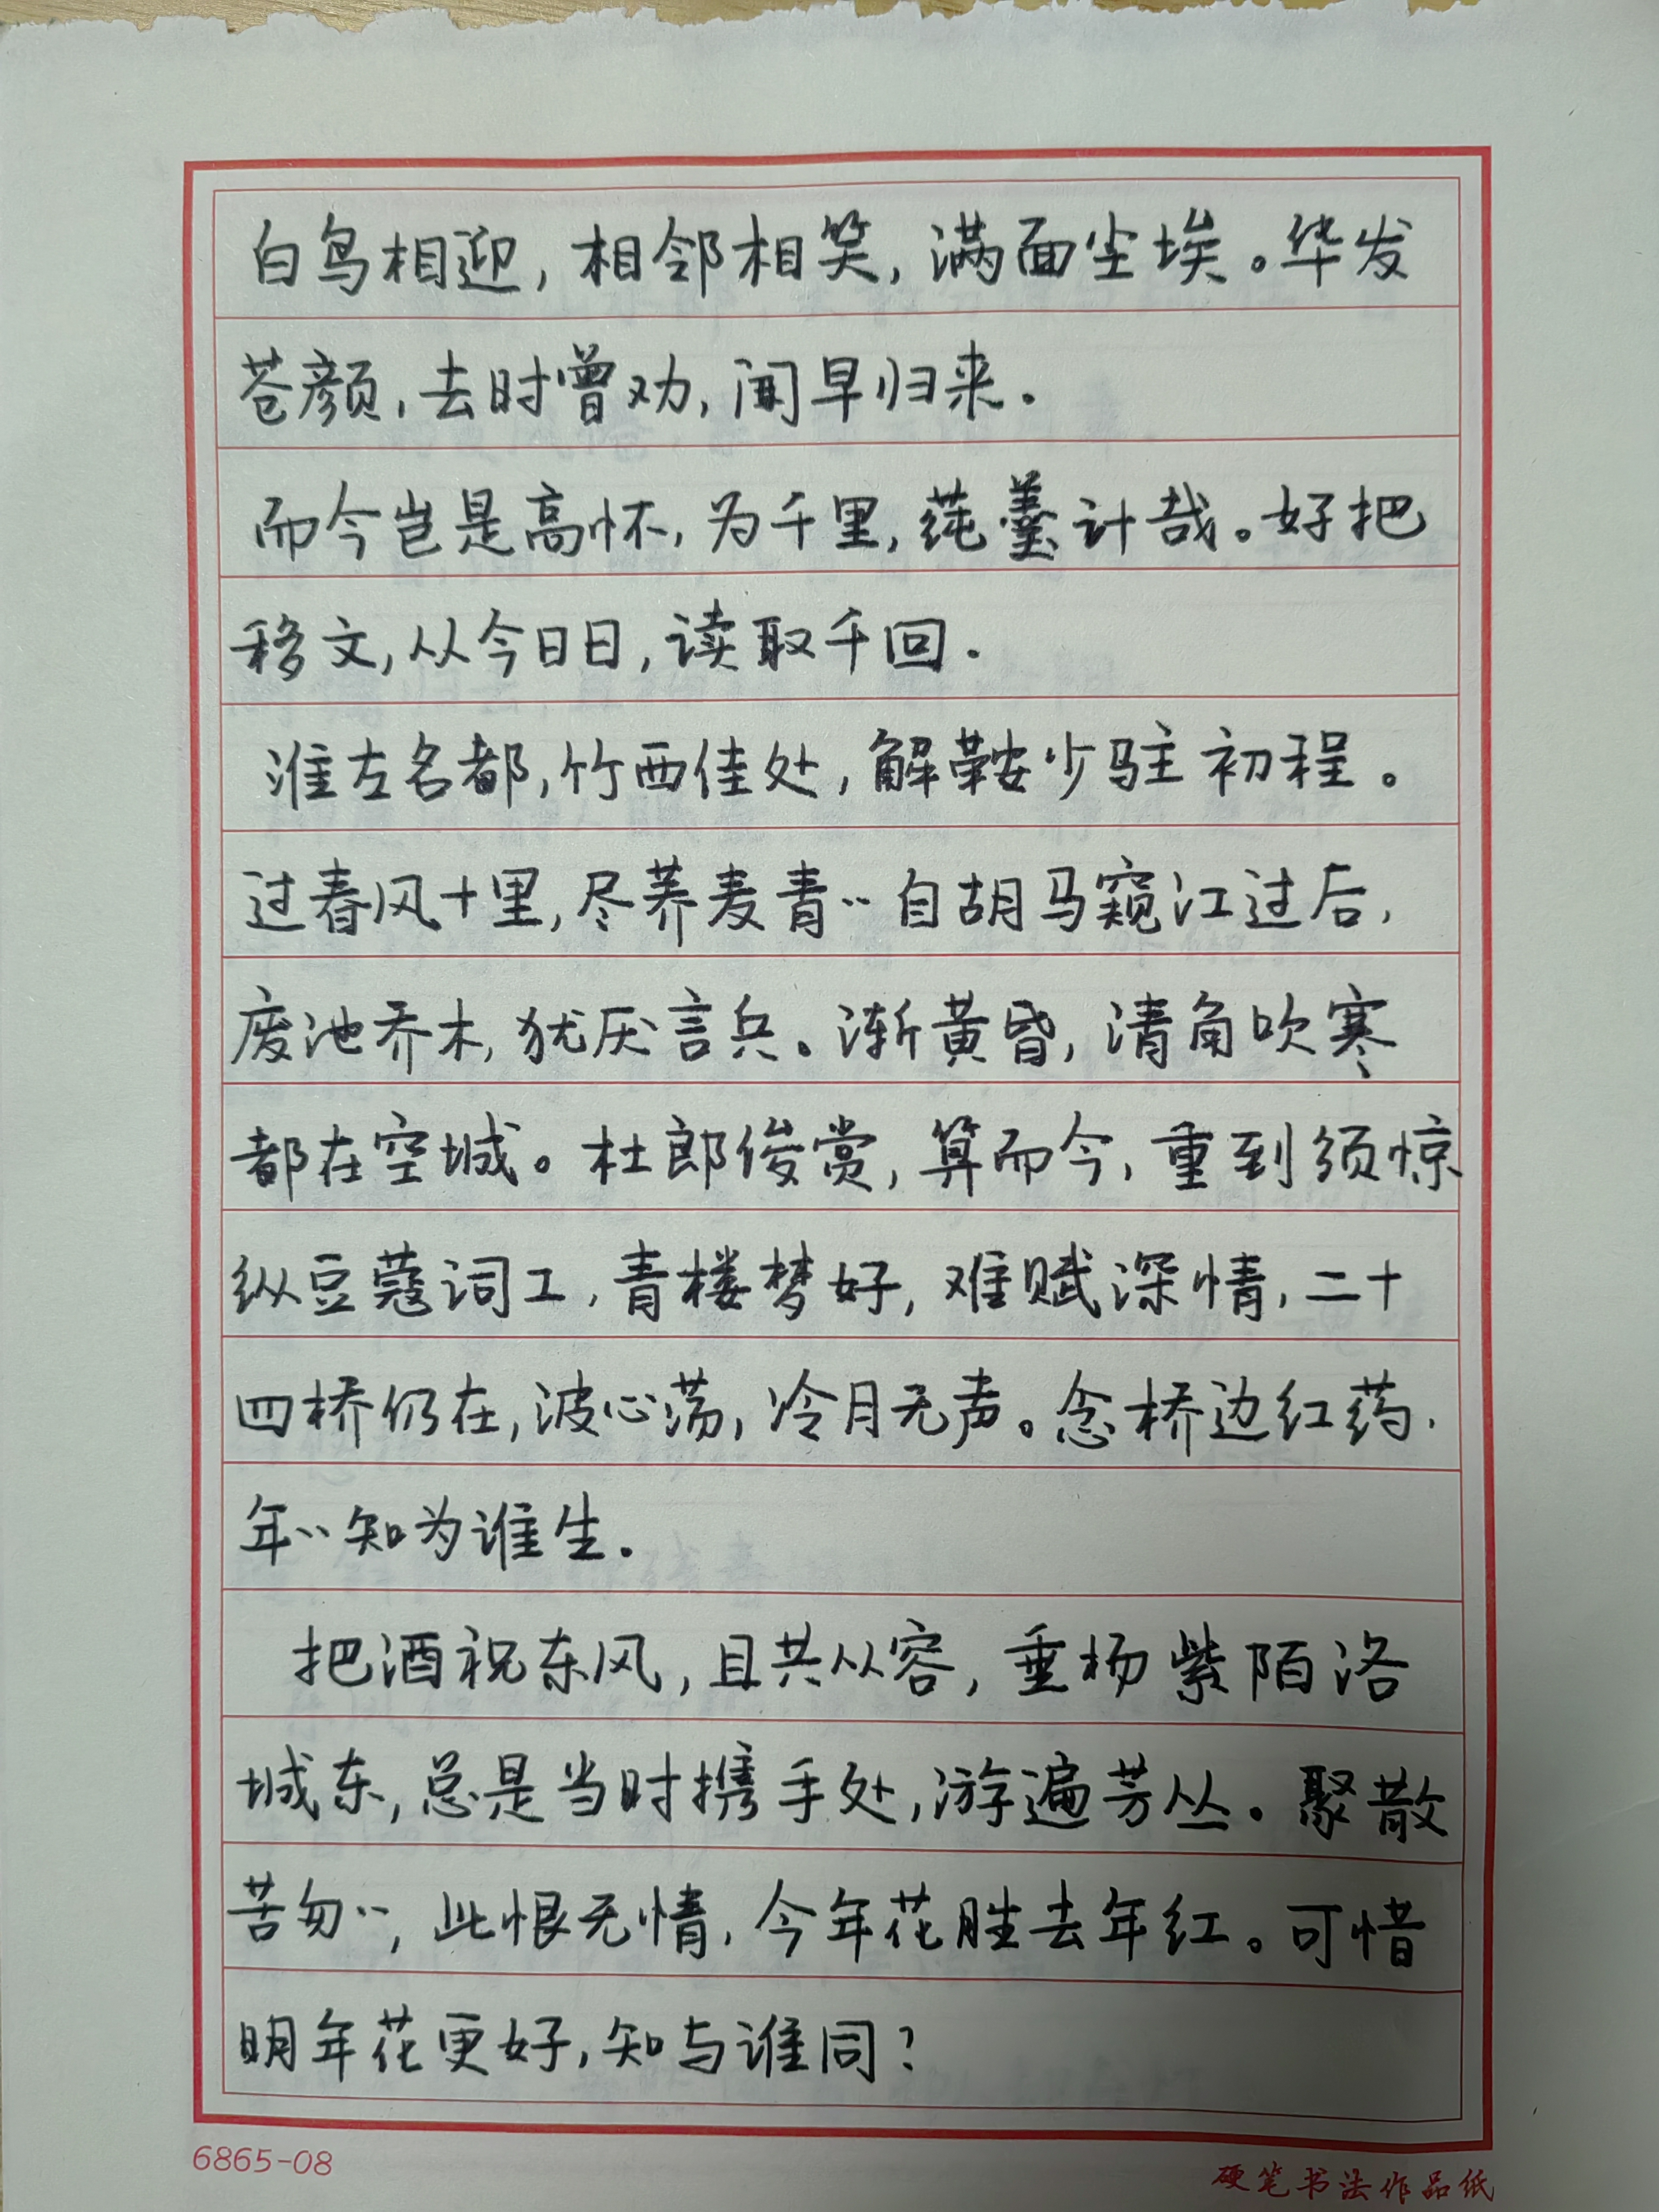 白鸟相迎,相邻相笑,满面尘埃。华发
苍颜,去时曾劝,闻早归来.
而今岂是高怀,为千里,莼羹计哉。好把
移文,从今日日,读取千回.
淮左名都,竹西佳处,解鞍少驻初程。
过春风十里,尽荞麦青··自胡马窥江过后,
废池乔木,犹厌言兵。渐黄昏,清角吹寒
都在空城。杜郎俊赏,算而今,重到须惊
纵豆蔻词工,青楼梦好,难赋深情,二十
四桥仍在,波心荡,冷月无声。念桥边红药.
年··知为谁生.
把酒祝东风,且共从容,垂杨紫陌洛
城东,总是当时携手处,游遍芳丛。聚散
苦匆··,此恨无情,今年花胜去年红。可惜
明年花更好,知与谁同?
6865-08
硬笔书法作品纸